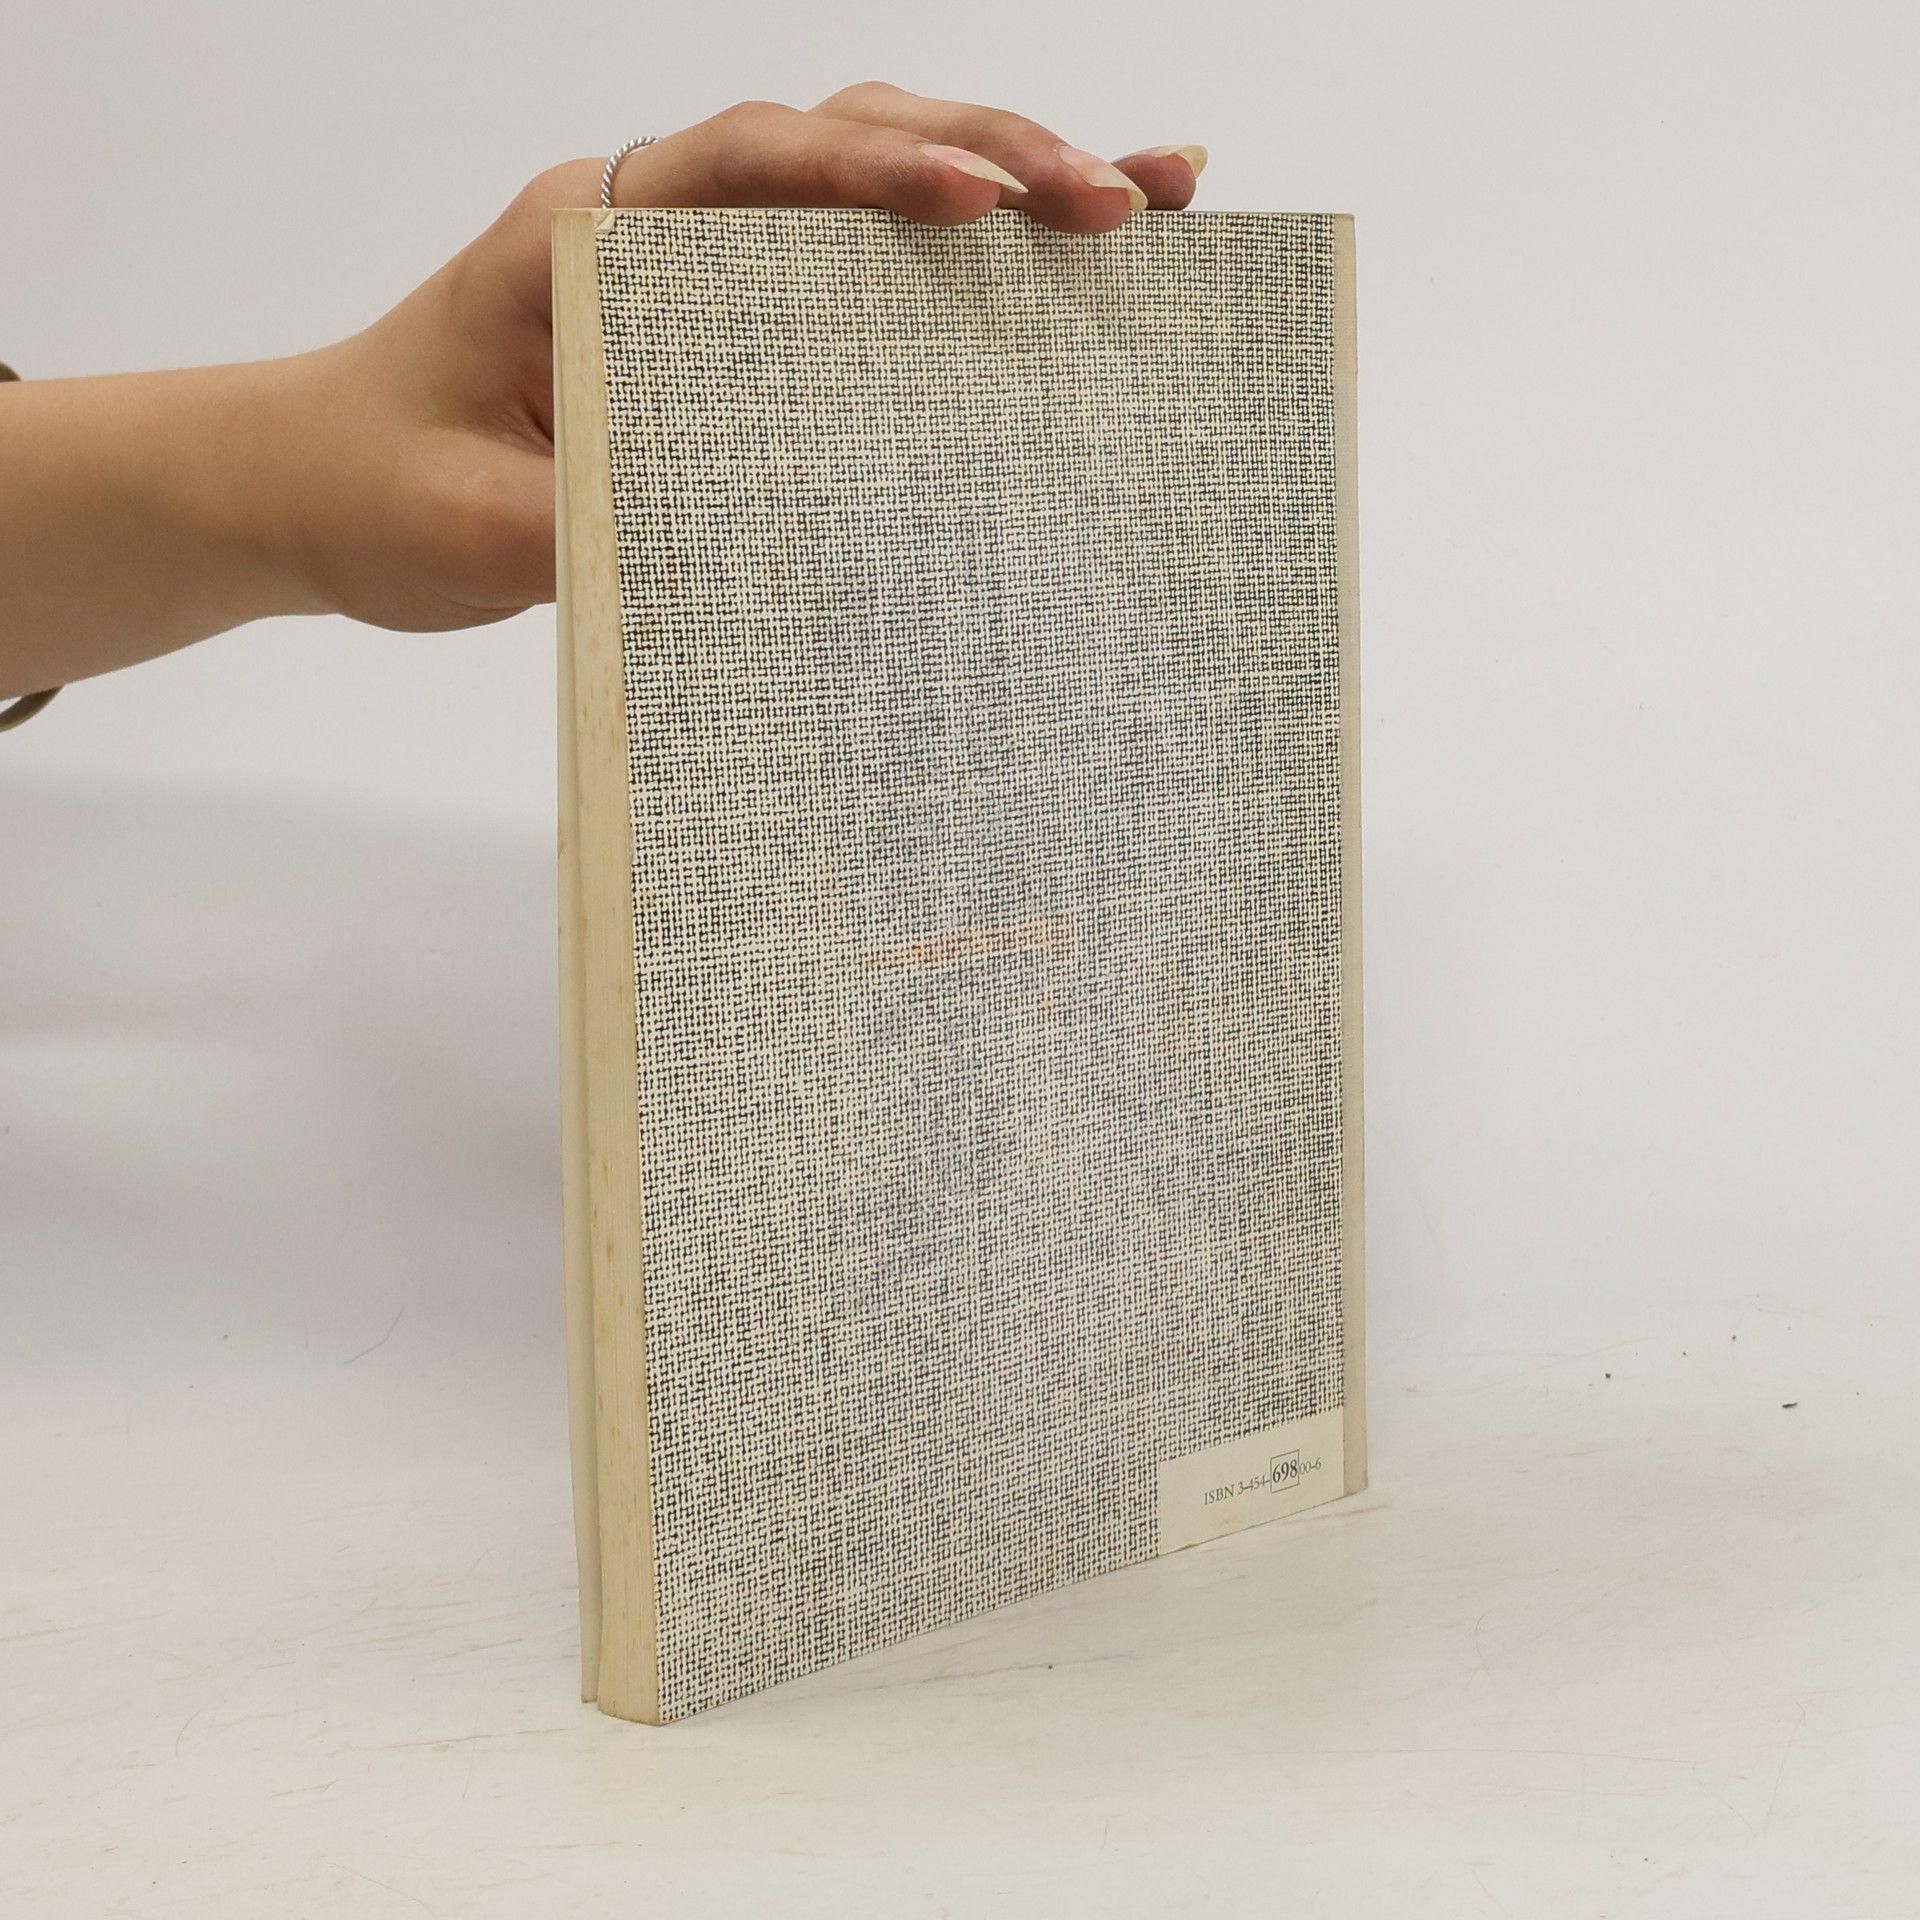 ISBN 3-454-69800-6